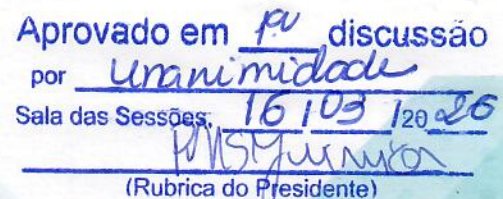 Aprovado em 1ª discussão
por unanimidade
Sala das Sessões, 16 / 03 / 20 26
(Rubrica do Presidente)